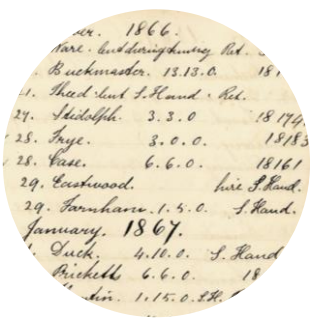 1866.
lent during Ret.
Buckmaster. 13.13.0. 181
lent S. Hand. Ret.
27. Stidolph. 3.3.0 18174
28. Frye. 3.0.0. 18183
28. Case. 6.6.0. 18161
29. Eastwood. hire S. Hand.
29. Farnham. 1.5.0. S. Hand.
January. 1867.
Duck. 4.10.0. S. Hand
Brickett 6.6.0. 18
1.15.0. S.H.